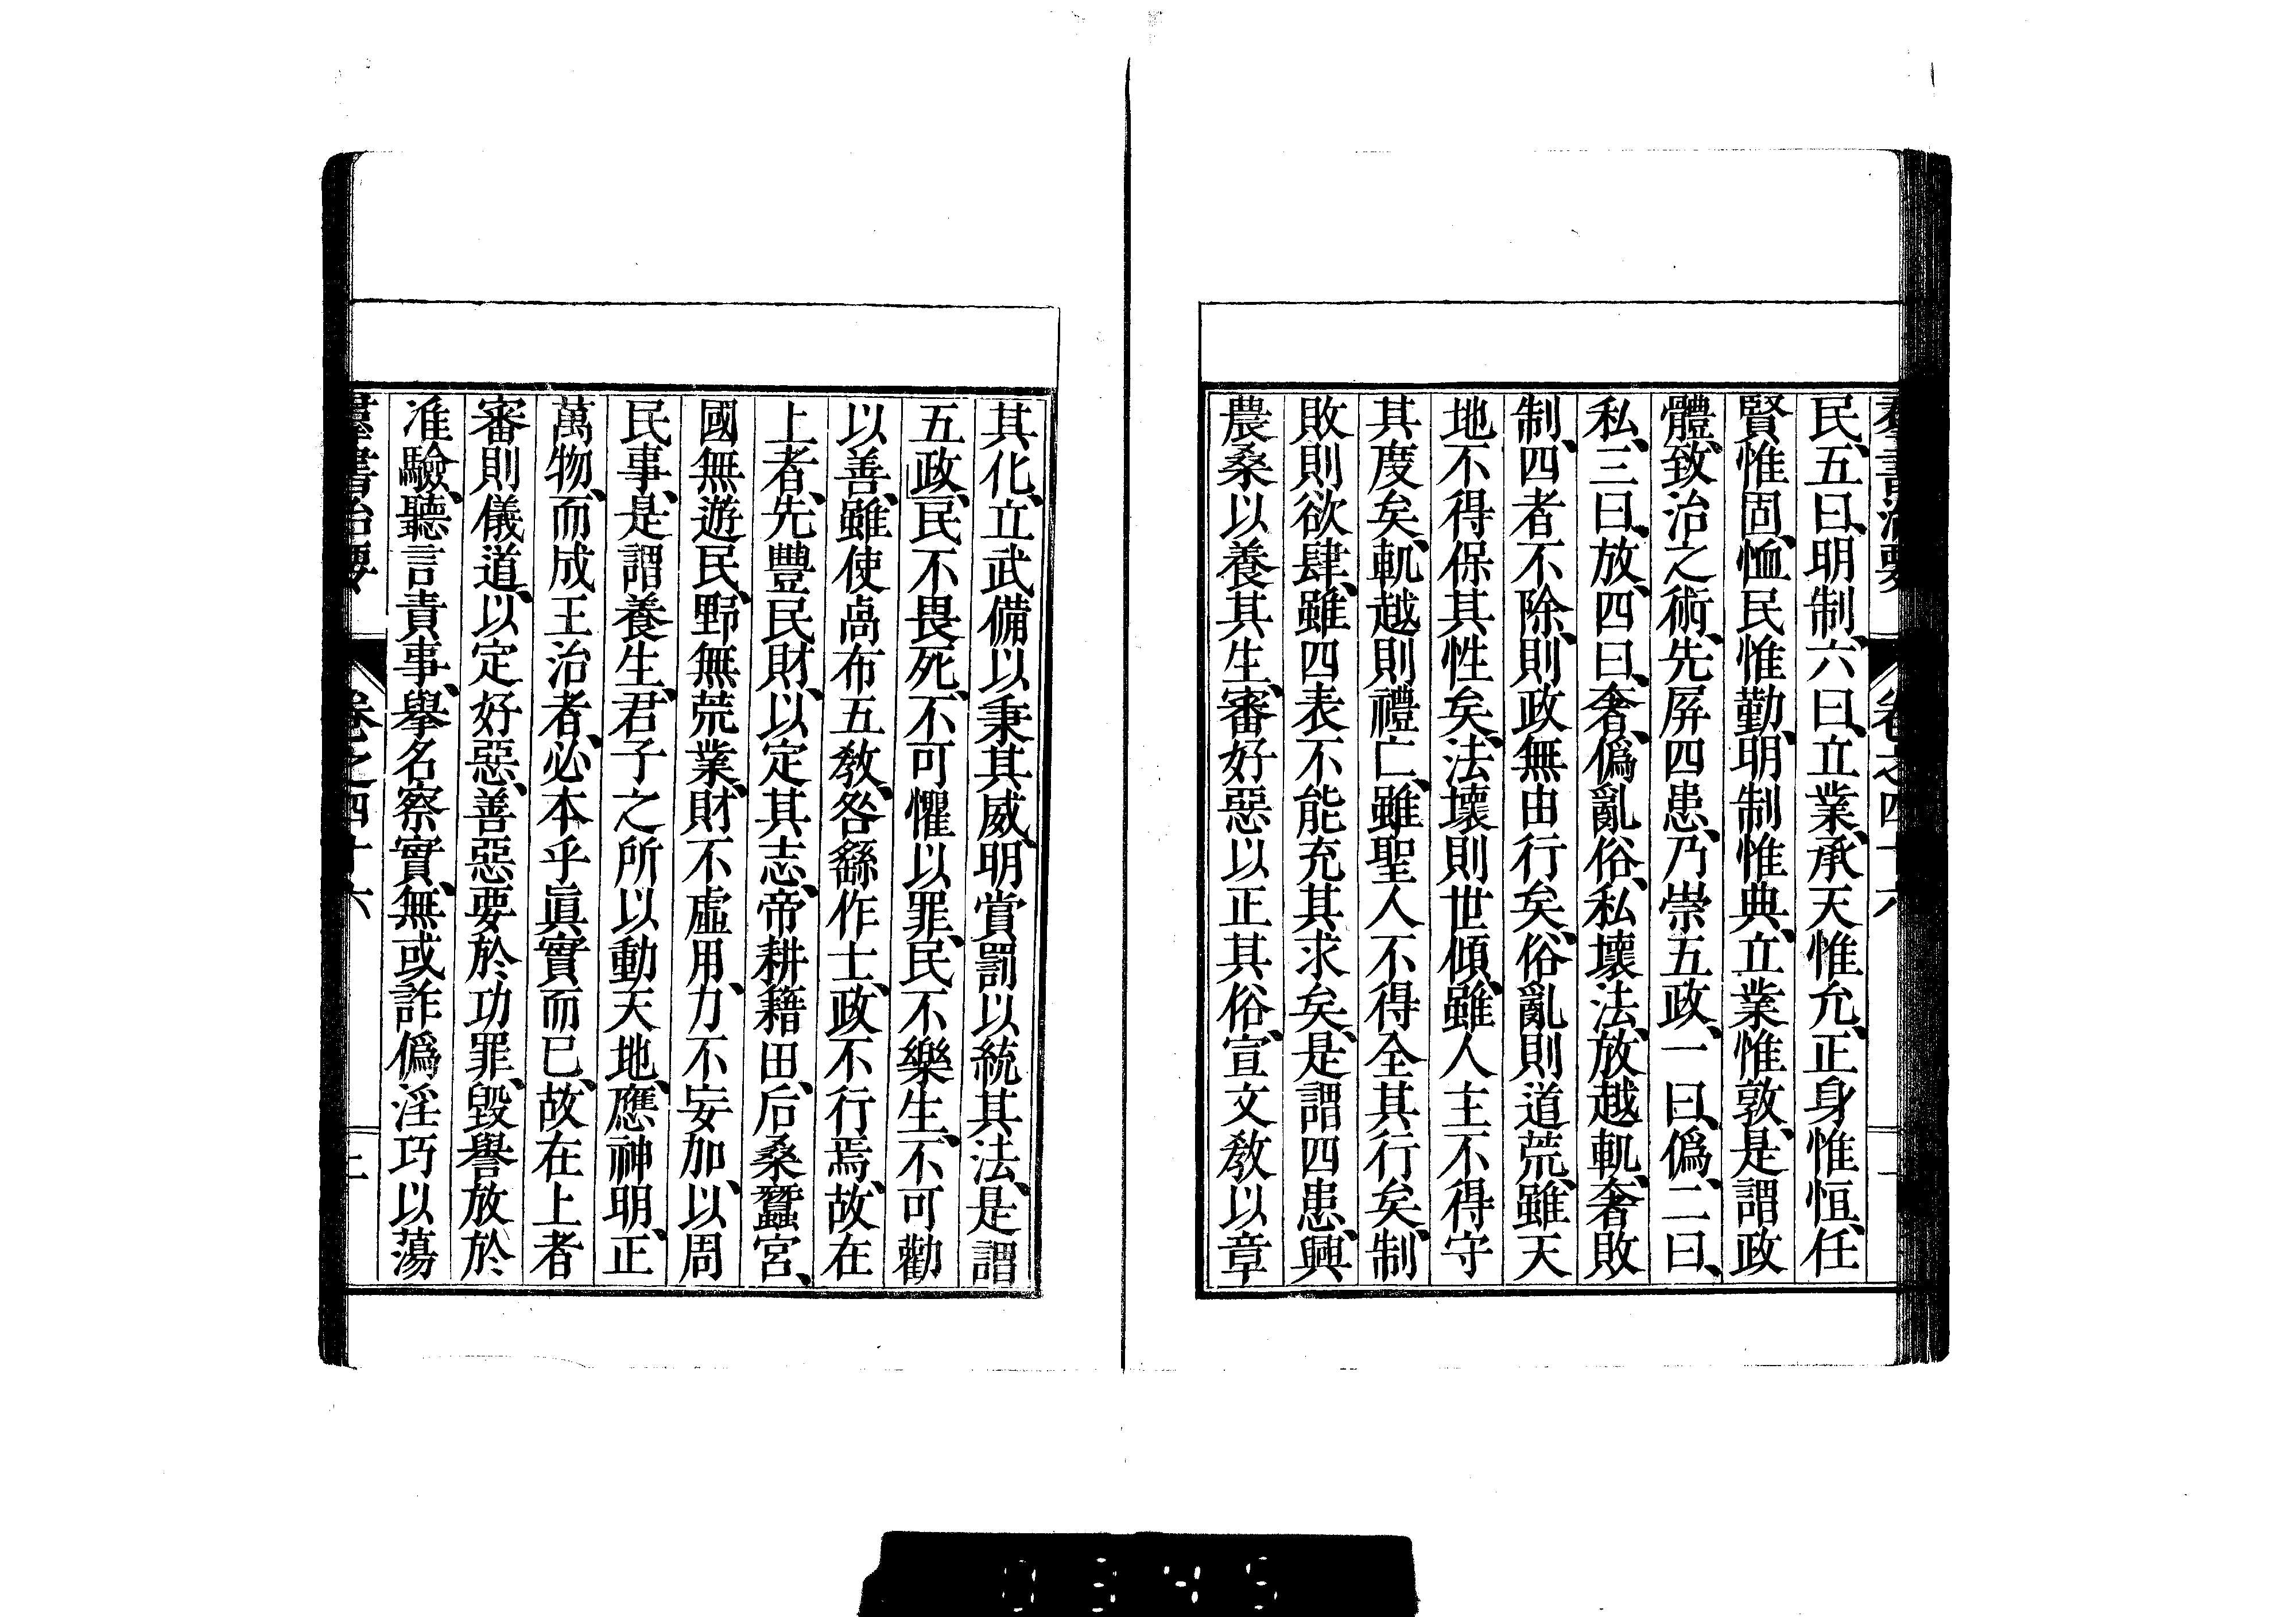 羣書治要 卷之四十六
民、五曰、明制、六曰、立業、承天惟允、正身惟恒、任
賢惟固、恤民惟勤、明制惟典、立業惟敦、是謂政
體、致治之術、先屏四患、乃崇五政、一曰、僞、二曰、
私、三曰、放、四曰、奢、僞亂俗、私壞法、放越軌、奢敗
制、四者不除、則政無由行矣、俗亂則道荒、雖天
地不得保其性矣、法壞則世傾、雖人主不得守
其度矣、軌越則禮亡、雖聖人不得全其行矣、制
敗則欲肆、雖四表不能充其求矣、是謂四患、興
農桑以養其生、審好惡以正其俗、宣文教以章
其化、立武備以秉其威、明賞罰以統其法、是謂
五政、民不畏死、不可懼以罪、民不樂生、不可勸
以善、雖使卨布五教、咎繇作士、政不行焉、故在
上者、先豐民財、以定其志、帝耕籍田、后桑蠶宮、
國無遊民、野無荒業、財不虛用、力不妄加、以周
民事、是謂養生、君子之所以動天地、應神明、正
萬物、而成王治者、必本乎眞實而已、故在上者
審則儀道、以定好惡、善惡要於功罪、毀譽放於
准驗、聽言責事、擧名察實、無或詐僞淫巧以蕩
羣書治要 卷之四十六
0345